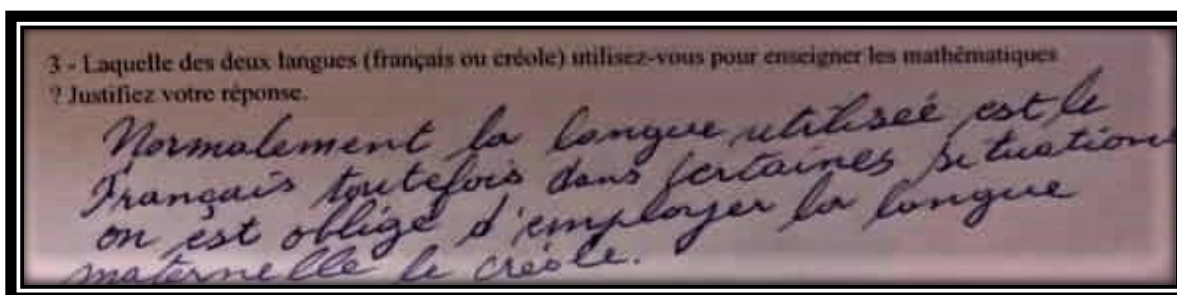 3 - Laquelle des deux langues (français ou créole) utilisez-vous pour enseigner les mathématiques
? Justifiez votre réponse.
Normalement la langue utilisée est le
Français toutefois dans certaines situations
on est obligé d'employer la langue
maternelle le créole.